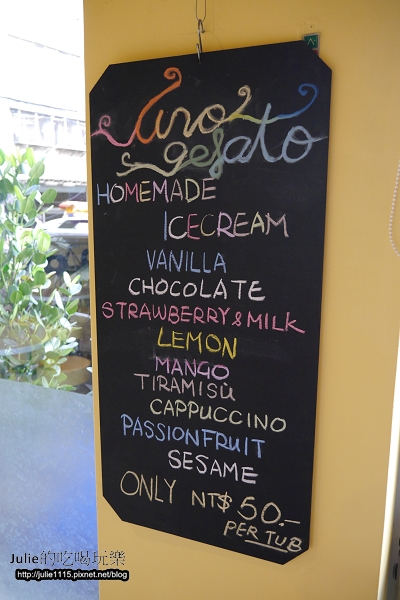 uno
gelato
HOMEMADE
ICECREAM
VANILLA
CHOCOLATE
STRAWBERRY & MILK
LEMON
MANGO
TIRAMISÙ
CAPPUCCINO
PASSIONFRUIT
SESAME
ONLY NT$ 50.-
PER TUB
Julie的吃喝玩樂
http://julie1115.pixnet.net/blog